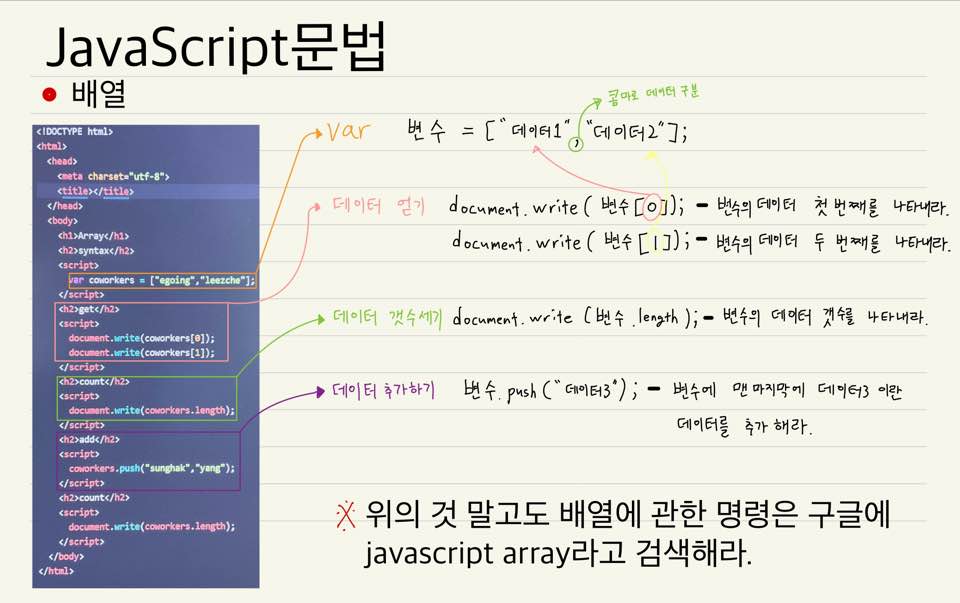 JavaScript문법
배열
<!DOCTYPE html>
<html>
<head>
<meta charset="utf-8">
<title></title>
</head>
<body>
<h1>Array</h1>
<h2>syntax</h2>
<script>
var coworkers = ["egoing","leezche"];
</script>
<h2>get</h2>
<script>
document.write(coworkers[0]);
document.write(coworkers[1]);
</script>
<h2>count</h2>
<script>
document.write(coworkers.length);
</script>
<h2>add</h2>
<script>
coworkers.push("sunghak","yang");
</script>
<h2>count</h2>
<script>
document.write(coworkers.length);
</script>
</body>
</html>
콤마로 데이터 구분
var 변수 = ["데이터1","데이터2"];
데이터 얻기 document.write( 변수[0]); - 변수의 데이터 첫 번째를 나타내라.
document.write( 변수[1]); - 변수의 데이터 두 번째를 나타내라.
데이터 갯수세기 document.write (변수.length); - 변수의 데이터 갯수를 나타내라.
데이터 추가하기 변수.push("데이터3"); - 변수에 맨 마지막에 데이터3 이란
데이터를 추가 해라.
※ 위의 것 말고도 배열에 관한 명령은 구글에
javascript array라고 검색해라.